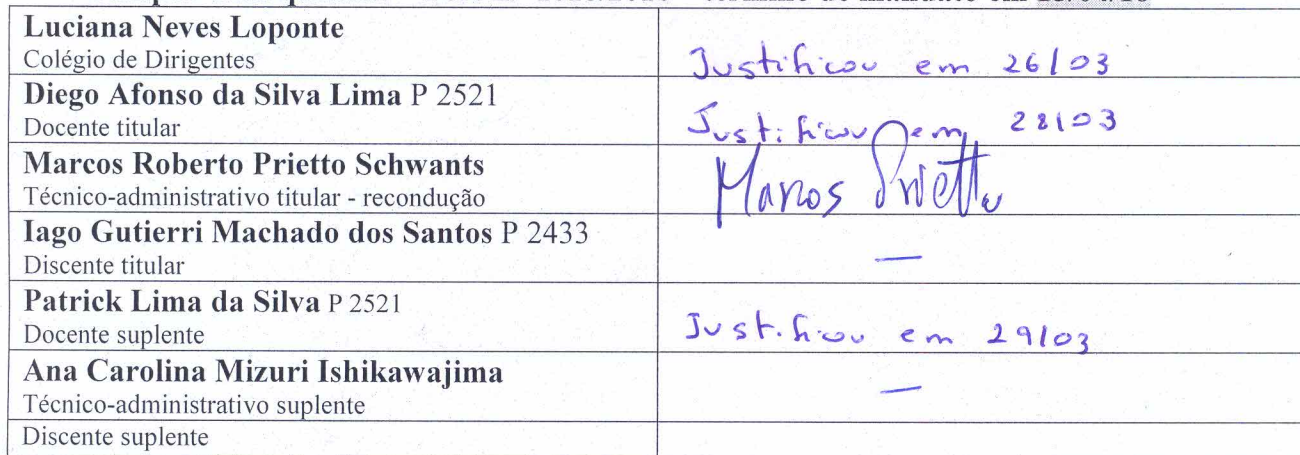 término do mandato em
Luciana Neves Loponte
Colégio de Dirigentes
Justificou em 26/03
Diego Afonso da Silva Lima P 2521
Docente titular
Justificou em 28/03
Marcos Roberto Prietto Schwants
Técnico-administrativo titular - recondução
Marcos Prietto
Iago Gutierri Machado dos Santos P 2433
Discente titular
—
Patrick Lima da Silva P 2521
Docente suplente
Justificou em 29/03
Ana Carolina Mizuri Ishikawajima
Técnico-administrativo suplente
—
Discente suplente